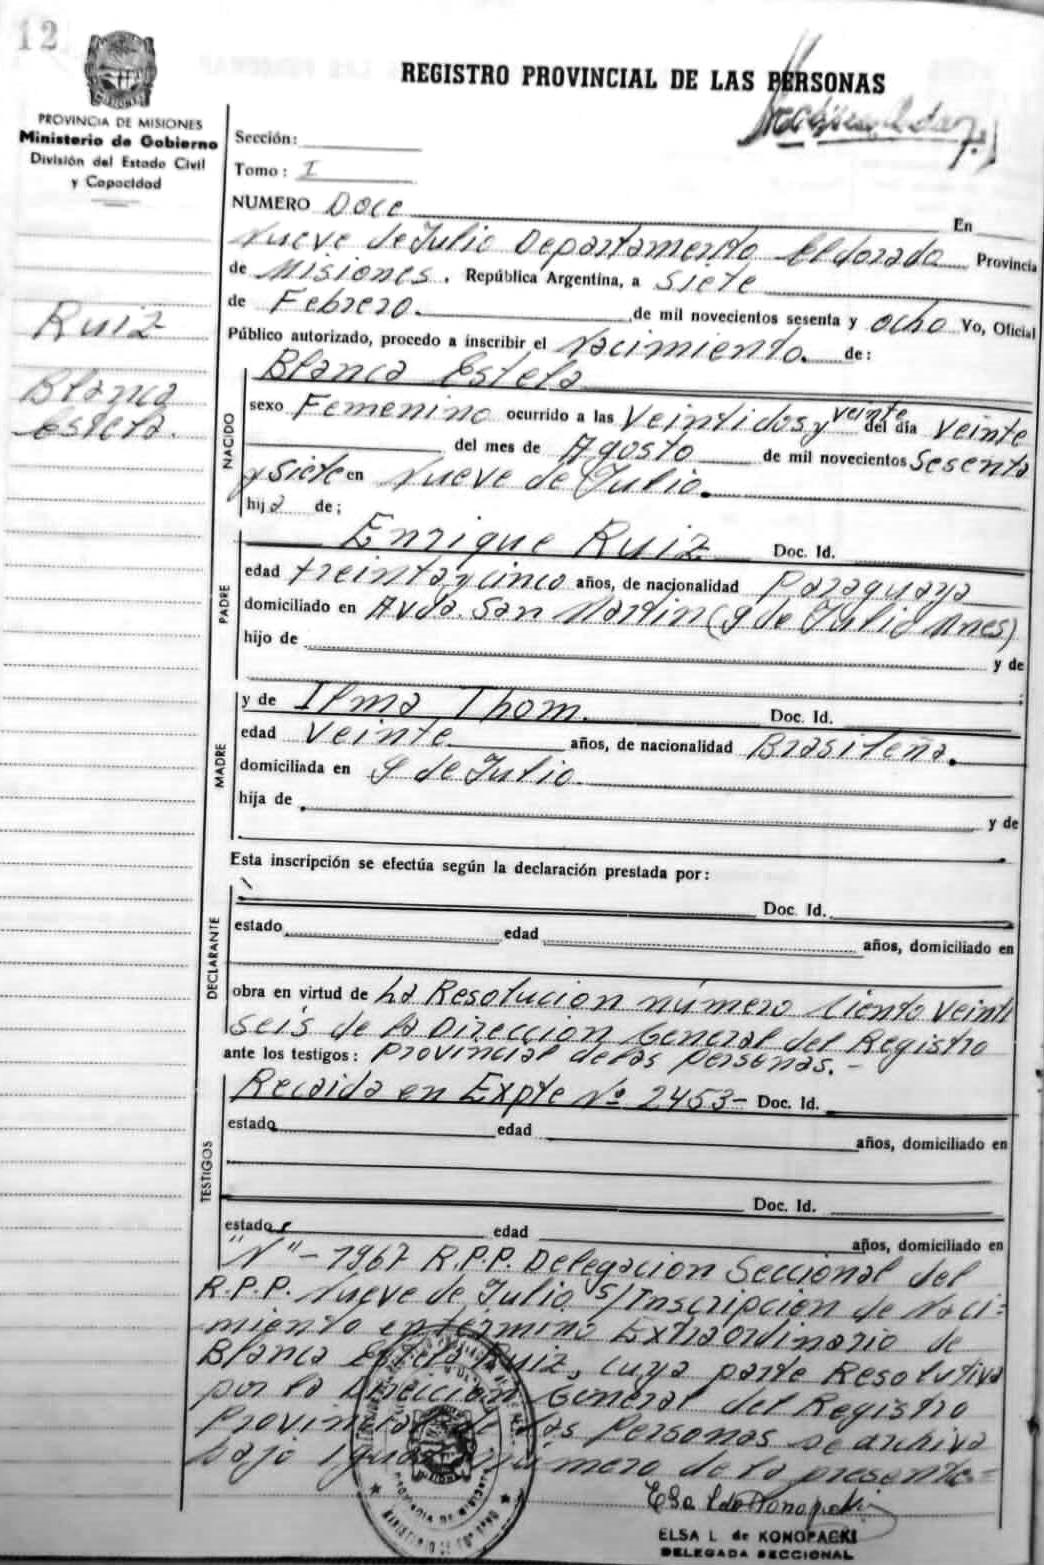 12
REGISTRO PROVINCIAL DE LAS PERSONAS
PROVINCIA DE MISIONES
Ministerio de Gobierno
División del Estado Civil
y Capacidad
Sección:
Tomo: I
NUMERO Doce En
Nueve de Julio Departamento Eldorado Provincia
de Misiones. República Argentina, a Siete
de Febrero. de mil novecientos sesenta y ocho Yo, Oficial
Público autorizado, procedo a inscribir el Nacimiento. de:
Ruiz
Blanca
Estela.
NACIDO
Blanca Estela
sexo Femenino ocurrido a las Veintidos y veinte del día veinte
del mes de Agosto de mil novecientos Sesenta
y siete en Nueve de Julio.
hija de;
PADRE
Enrique Ruiz Doc. Id.
edad treinta y cinco años, de nacionalidad Paraguaya
domiciliado en Avda. San Martin (9 de Julio Mnes)
hijo de
y de
MADRE
y de Ilma Thom. Doc. Id.
edad Veinte años, de nacionalidad Brasileña.
domiciliada en 9 de Julio
hija de
y de
Esta inscripción se efectúa según la declaración prestada por:
DECLARANTE
Doc. Id.
estado edad años, domiciliado en
obra en virtud de La Resolucion número Ciento veinti
seis de la Dirección General del Registro
ante los testigos: Provincial de las Personas. -
TESTIGOS
Recaida en Expte Nº 2453- Doc. Id.
estado edad años, domiciliado en
Doc. Id.
estado edad años, domiciliado en
"N" - 1967 R.P.P. Delegacion Seccional del
R.P.P. Nueve de Julio s/Inscripción de Naci-
miento en termino Extraordinario de
Blanca Estela Ruiz, cuya parte Resolutiva
por la Dirección General del Registro
Provincial de las Personas se archiva
bajo igual número de la presente=
ELSA L. de KONOPACKI
DELEGADA SECCIONAL